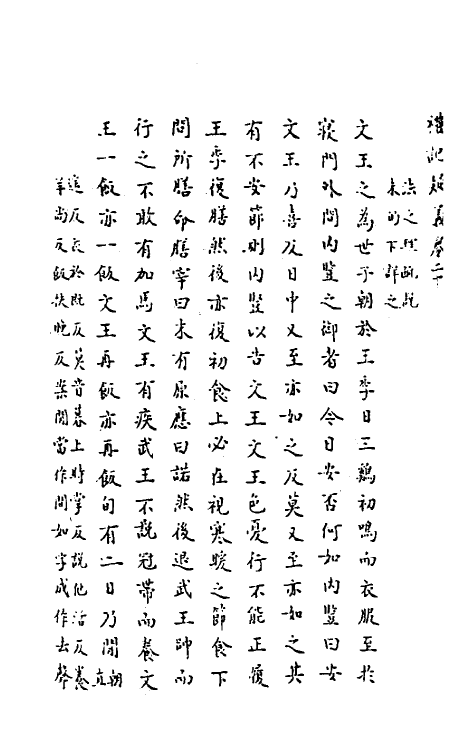 禮記疑義卷二十
法之
未的下詳之
文王之為世子朝於王季日三鷄初鳴而衣服至於
寢門外問內豎之御者曰今日安否何如內豎曰安
文王乃喜及日中又至亦如之及莫又至亦如之其
有不安節則內豎以告文王文王色憂行不能正履
王季復膳然後亦復初食上必在視寒暖之節食下
問所膳命膳宰曰末有原應曰諾然後退武王帥而
行之不敢有加焉文王有疾武王不說冠帶而養文
王一飯亦一飯文王再飯亦再飯旬有二日乃間朝直
遙反衣於既反莫音暮上時掌反說他活反養
羊尚反飯扶晚反案間當作間如字或作去聲